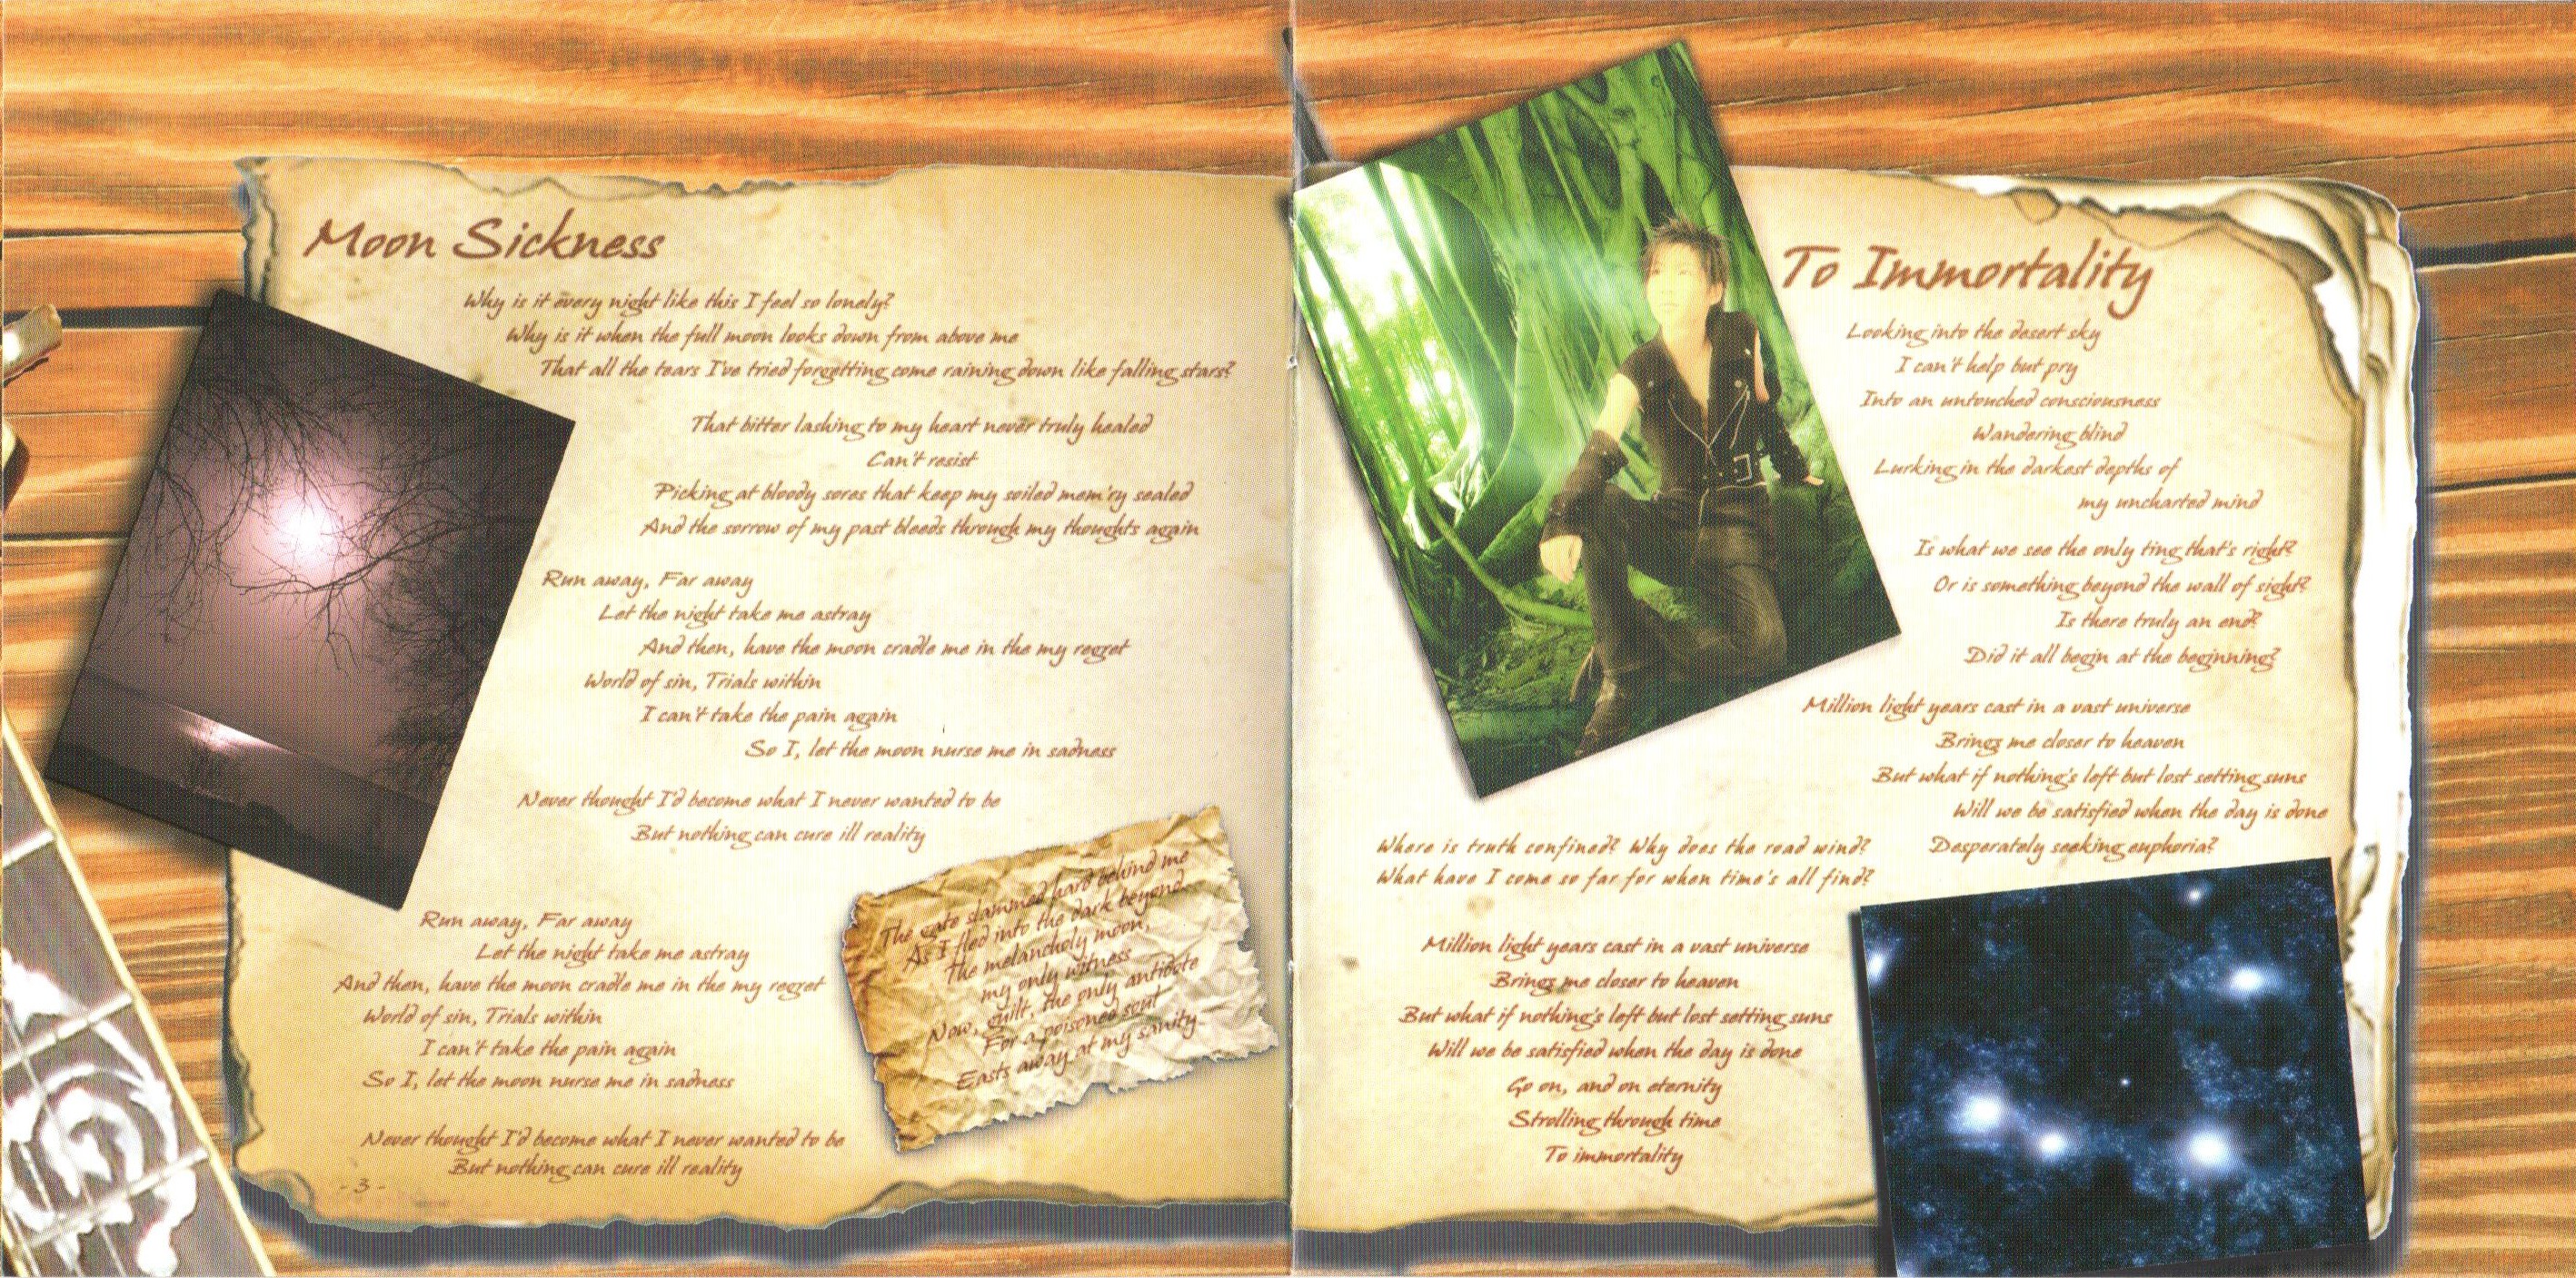 Moon Sickness
Why is it every night like this I feel so lonely?
Why is it when the full moon looks down from above me
That all the tears I've tried forgetting come raining down like falling stars?
That bitter lashing to my heart never truly healed
Can't resist
Picking at bloody sores that keep my soiled mem'ry sealed
And the sorrow of my past bleeds through my thoughts again
Run away, Far away
Let the night take me astray
And then, have the moon cradle me in the my regret
World of sin, Trials within
I can't take the pain again
So I, let the moon nurse me in sadness
Never thought I'd become what I never wanted to be
But nothing can cure ill reality
The gate slammed hard behind me
As I fled into the dark beyond
The melancholy moon,
my only witness
Now, guilt, the only antidote
For a poisoned soul
Easts away at my sanity
Run away, Far away
Let the night take me astray
And then, have the moon cradle me in the my regret
World of sin, Trials within
I can't take the pain again
So I, let the moon nurse me in sadness
Never thought I'd become what I never wanted to be
But nothing can cure ill reality
- 3 -
To Immortality
Looking into the desert sky
I can't help but pry
Into an untouched consciousness
Wandering blind
Lurking in the darkest depths of
my uncharted mind
Is what we see the only ting that's right?
Or is something beyond the wall of sight?
Is there truly an end?
Did it all begin at the beginning?
Million light years cast in a vast universe
Brings me closer to heaven
But what if nothing's left but lost setting suns
Will we be satisfied when the day is done
Desperately seeking euphoria?
Where is truth confined? Why does the road wind?
What have I come so far for when time's all find?
Million light years cast in a vast universe
Brings me closer to heaven
But what if nothing's left but lost setting suns
Will we be satisfied when the day is done
Go on, and on eternity
Strolling through time
To immortality